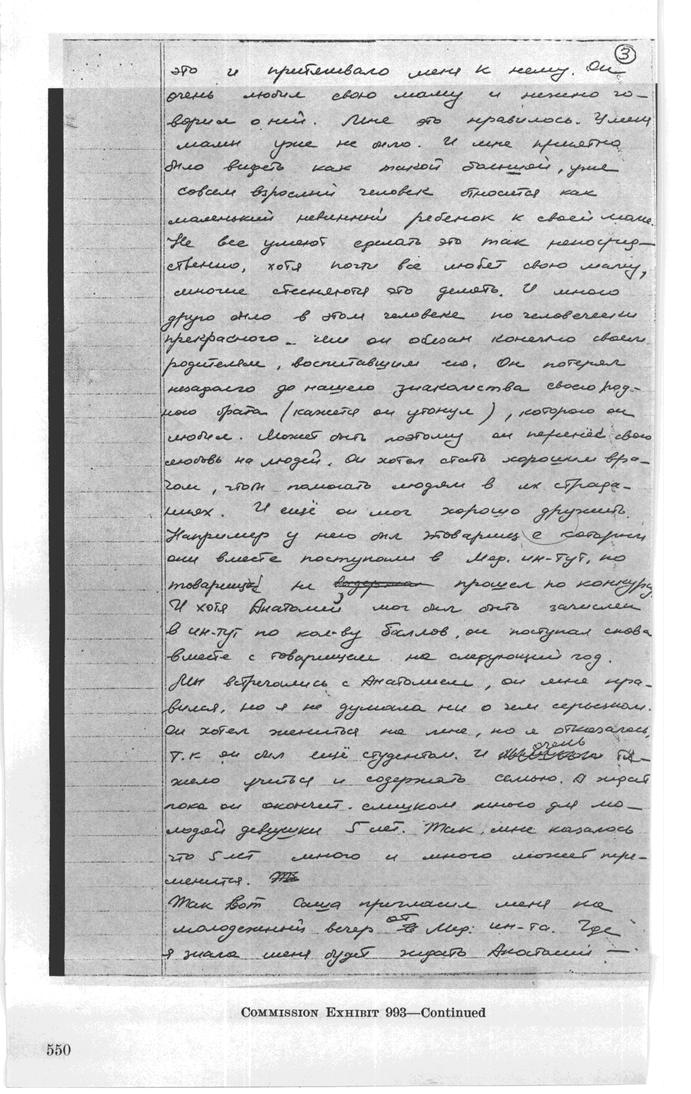 3
это и притягивало меня к нему. Он
очень любил свою маму и нежно го-
ворил о ней. Мне это нравилось. У меня
мамы уже не было. И мне приятно
было видеть как такой большой, уже
совсем взрослый человек относится как
маленький невинный ребенок к своей маме.
Не все умеют сделать это так непосред-
ственно, хотя почти все любят свою маму,
многие стесняются это делать. И много
друго было в этом человеке по человечески
прекрасного - чем он обязан конечно своим
родителям, воспитавшим его. Он потерял
незадолго до нашего знакомства своего род-
ного брата (кажется он утонул), которого он
любил. Может быть поэтому он перенёс свою
любовь на людей. Он хотел стать хорошим вра-
чом, чтоб помогать людям в их страда-
ниях. И ещё он мог хорошо дружить.
Например у него был товарищ с которым
они вместе поступали в Мед. ин-тут, но
товарищ не прошел по конкурсу.
И хотя Анатолий мог был быть зачислен
в ин-тут по кол-ву баллов, он поступал снова
вместе с товарищем на следующий год.
Мы встречались с Анатолием, он мне нра-
вился, но я не думала ни о чем серьезном.
Он хотел жениться на мне, но я отказалась,
т.к он был ещё студентом. И очень тя-
жело учиться и содержать семью. А ждать
пока он окончит. слишком много для мо-
лодой девушки 5 лет. Так, мне казалось
что 5 лет много и много может пере-
менится.
Так вот Саша пригласил меня на
молодежный вечер от Мед. ин-та. Где
я знала меня будет ждать Анатолий —
COMMISSION EXHIBIT 993—Continued
550